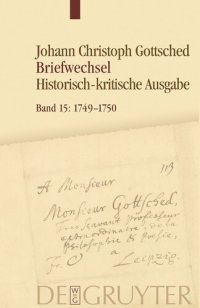 Johann Christoph Gottsched
Briefwechsel
Historisch-kritische Ausgabe
Band 15: 1749–1750
113
A Monsieur
Monsieur Gottsched,
professeur
extraordinaire de la
Philosophie & Poesie,
à
Leipzig.
DE GRUYTER